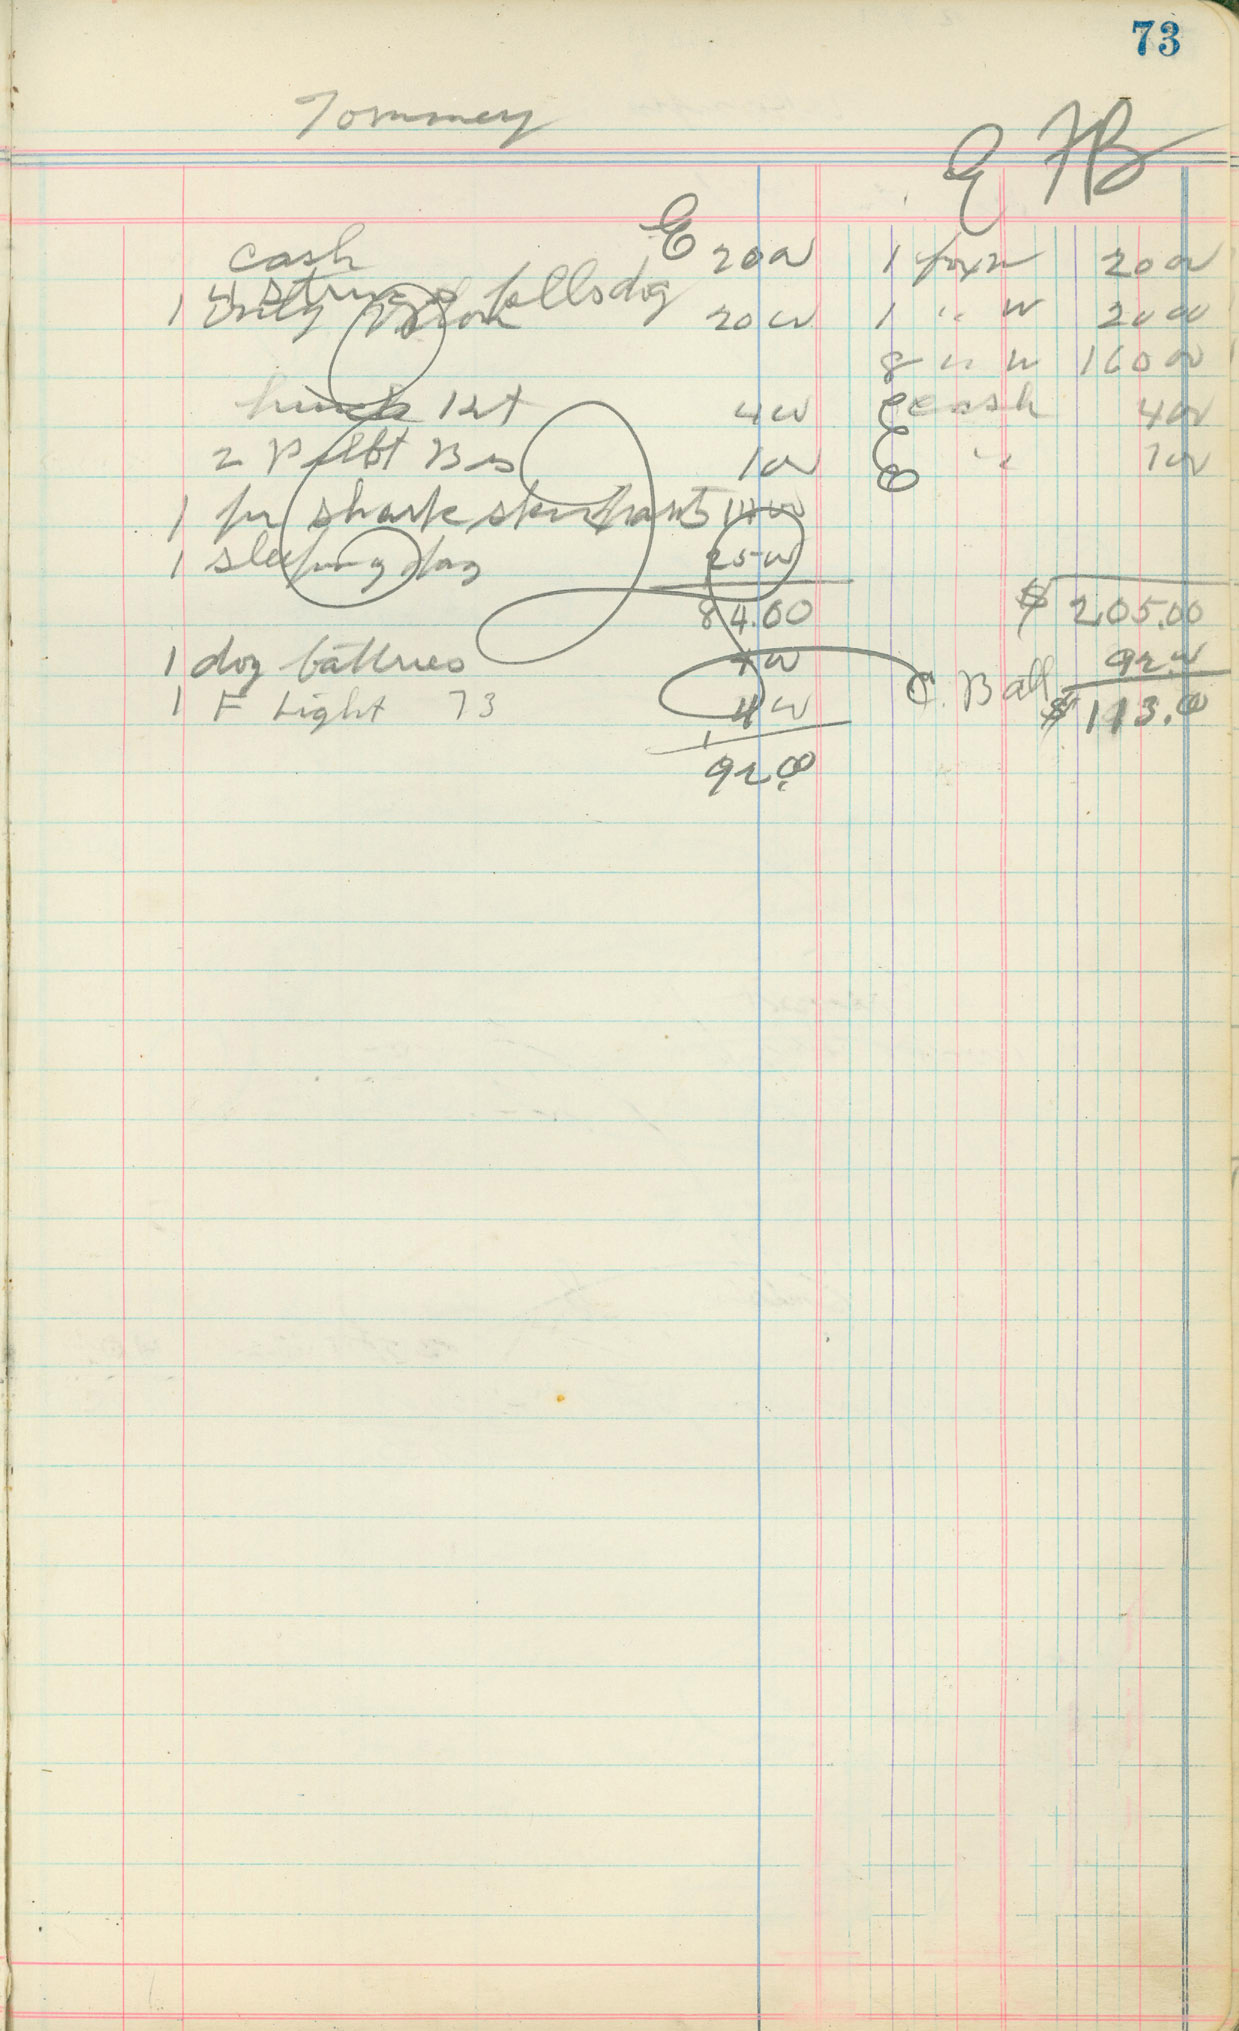 73
Tommey
E HB
cash E 20 00 1 fox w 20 00
4 string bells dog
1 20 00 1 " w 20 00
8 " w 160 00
lunch 12t 4 00 E cash 4 00
2 Pilot Bis 1 00 E " 1 00
1 pr shark skin pants 14 00
1 sleeping bag 25 00
84.00 $ 205.00
1 doz batteries 4 00 92 00
1 F Light 73 4 00 C. Ball $ 113.00
92.00